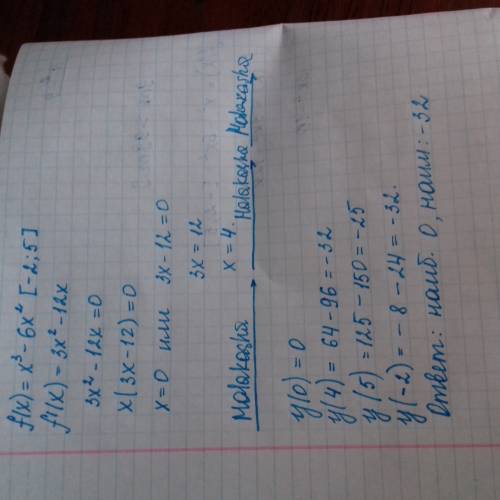 f(x) = x³ - 6x² [-2; 5]
f'(x) = 3x² - 12x
3x² - 12x = 0
x(3x - 12) = 0
x = 0 или 3x - 12 = 0
3x = 12
x = 4.
Malakasha Malakasha Malakasha
y(0) = 0
y(4) = 64 - 96 = -32
y(5) = 125 - 150 = -25
y(-2) = -8 - 24 = -32.
Ответ: наиб. 0, наим: -32